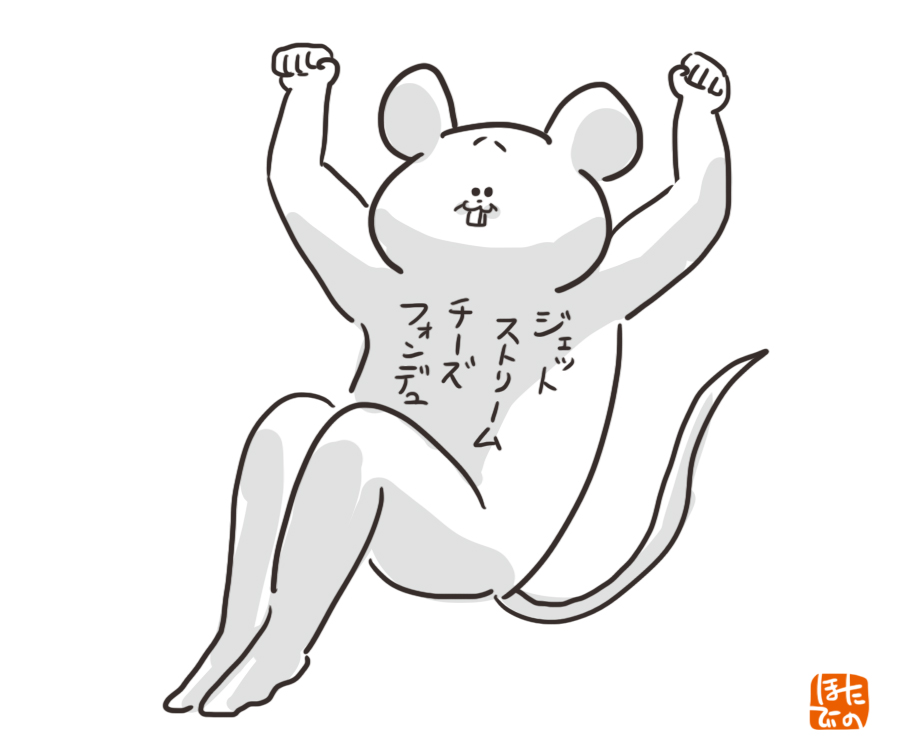 ジェット
ストリーム
チーズ
フォンデュ